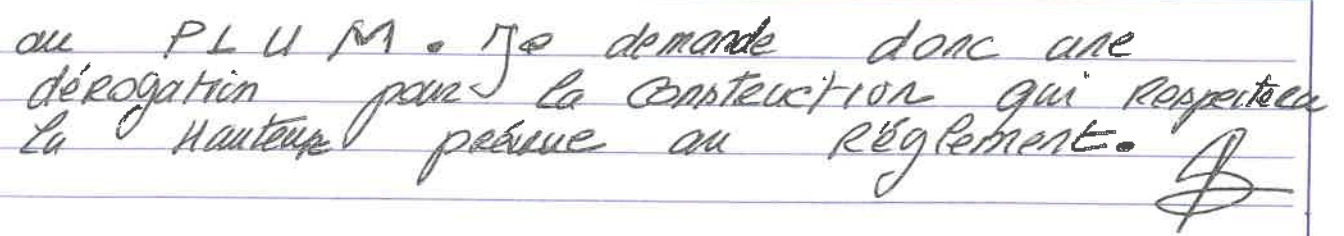 au PLUM. Je demande donc une
dérogation pour la construction qui respectera
la Hauteur prévue au Réglement.